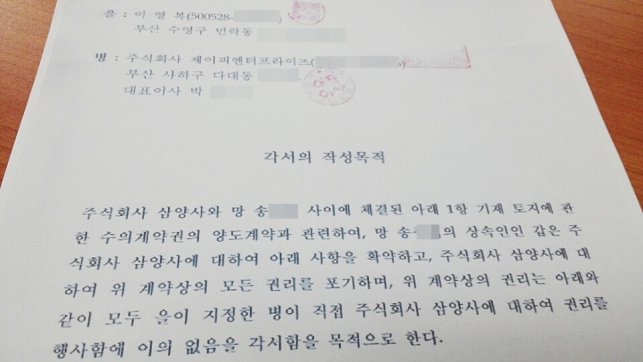 을 : 이 영 복(500528-
부산 수영구 민락동
병 : 주식회사 제이피엔터프라이즈(
부산 사하구 다대동
대표이사 박
각서의 작성목적
주식회사 삼양사와 망 송 사이에 체결된 아래 1항 기재 토지에 관
한 수의계약권의 양도계약과 관련하여, 망 송 의 상속인인 갑은 주
식회사 삼양사에 대하여 아래 사항을 확약하고, 주식회사 삼양사에 대
하여 위 계약상의 모든 권리를 포기하며, 위 계약상의 권리는 아래와
같이 모두 을이 지정한 병이 직접 주식회사 삼양사에 대하여 권리를
행사함에 이의 없음을 각서함을 목적으로 한다.